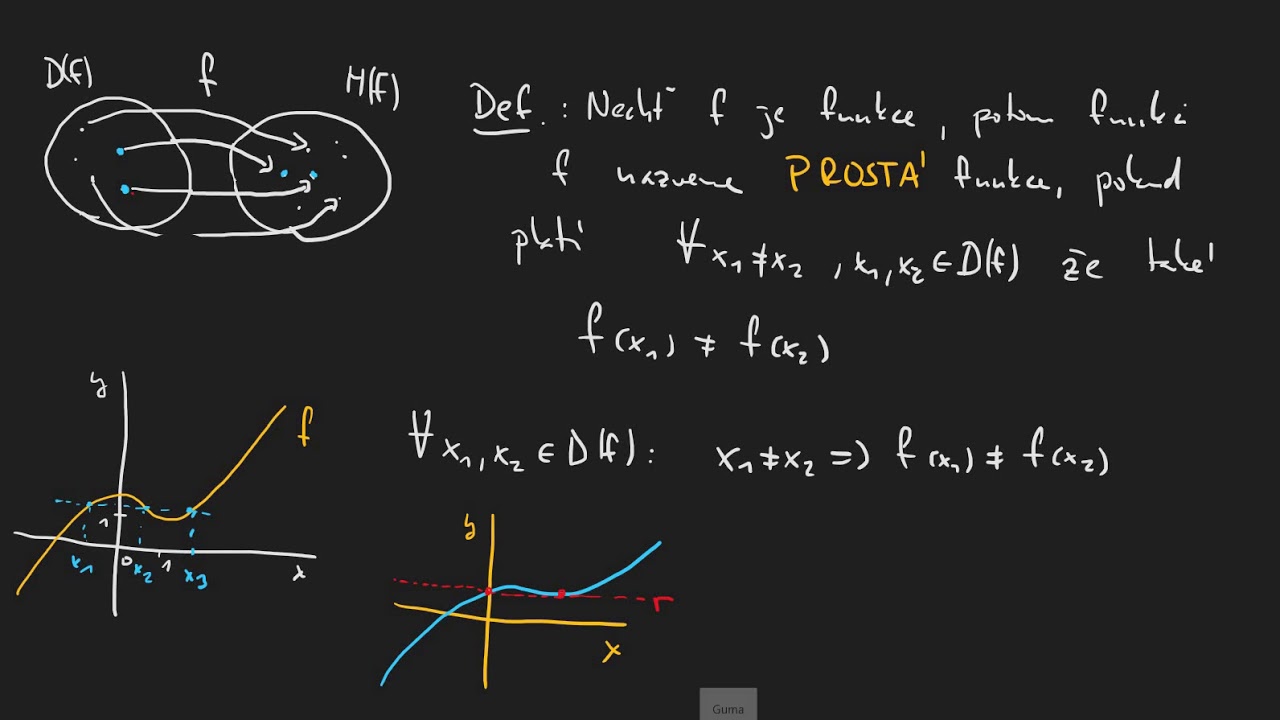 D(f) f H(f)
Def.: Nechť f je funkce, potom funkci
f nazveme PROSTÁ funkce, pokud
platí ∀x₁≠x₂, x₁,x₂∈D(f) že také
f(x₁) ≠ f(x₂)
∀x₁,x₂∈D(f): x₁≠x₂ => f(x₁) ≠ f(x₂)
y
f
1
0 1
x₁ x₂ x₃ x
y
r
x
Guma